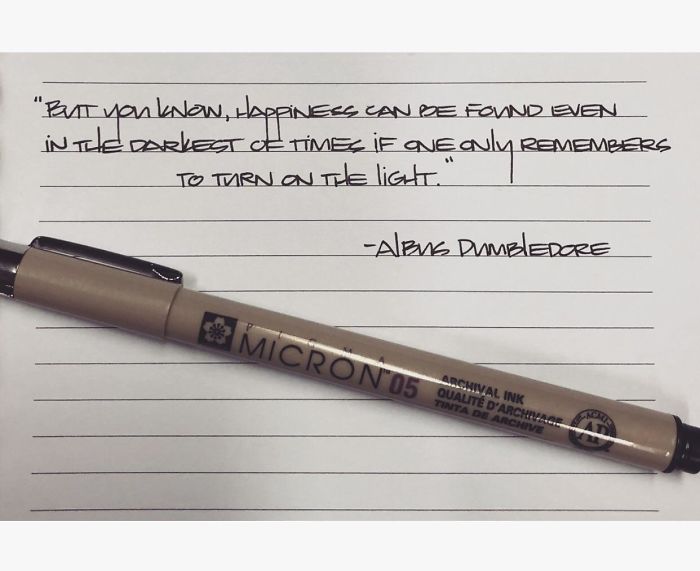 "But you know, happiness can be found even
in the darkest of times if one only remembers
to turn on the light."
-Albus Dumbledore
PIGMA
MICRON™ 05
ARCHIVAL INK
QUALITÉ D'ARCHIVAGE
TINTA DE ARCHIVE
ACMI
AP